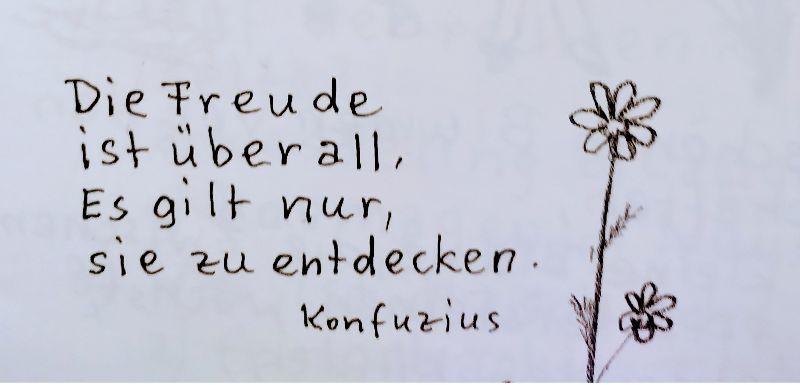 Die Freude
ist überall,
Es gilt nur,
sie zu entdecken.
Konfuzius